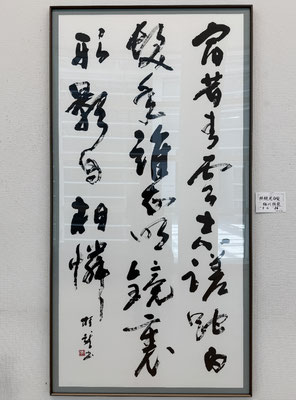 宿昔青雲志蹉跎白
髮年誰知明鏡裏
形影自相憐